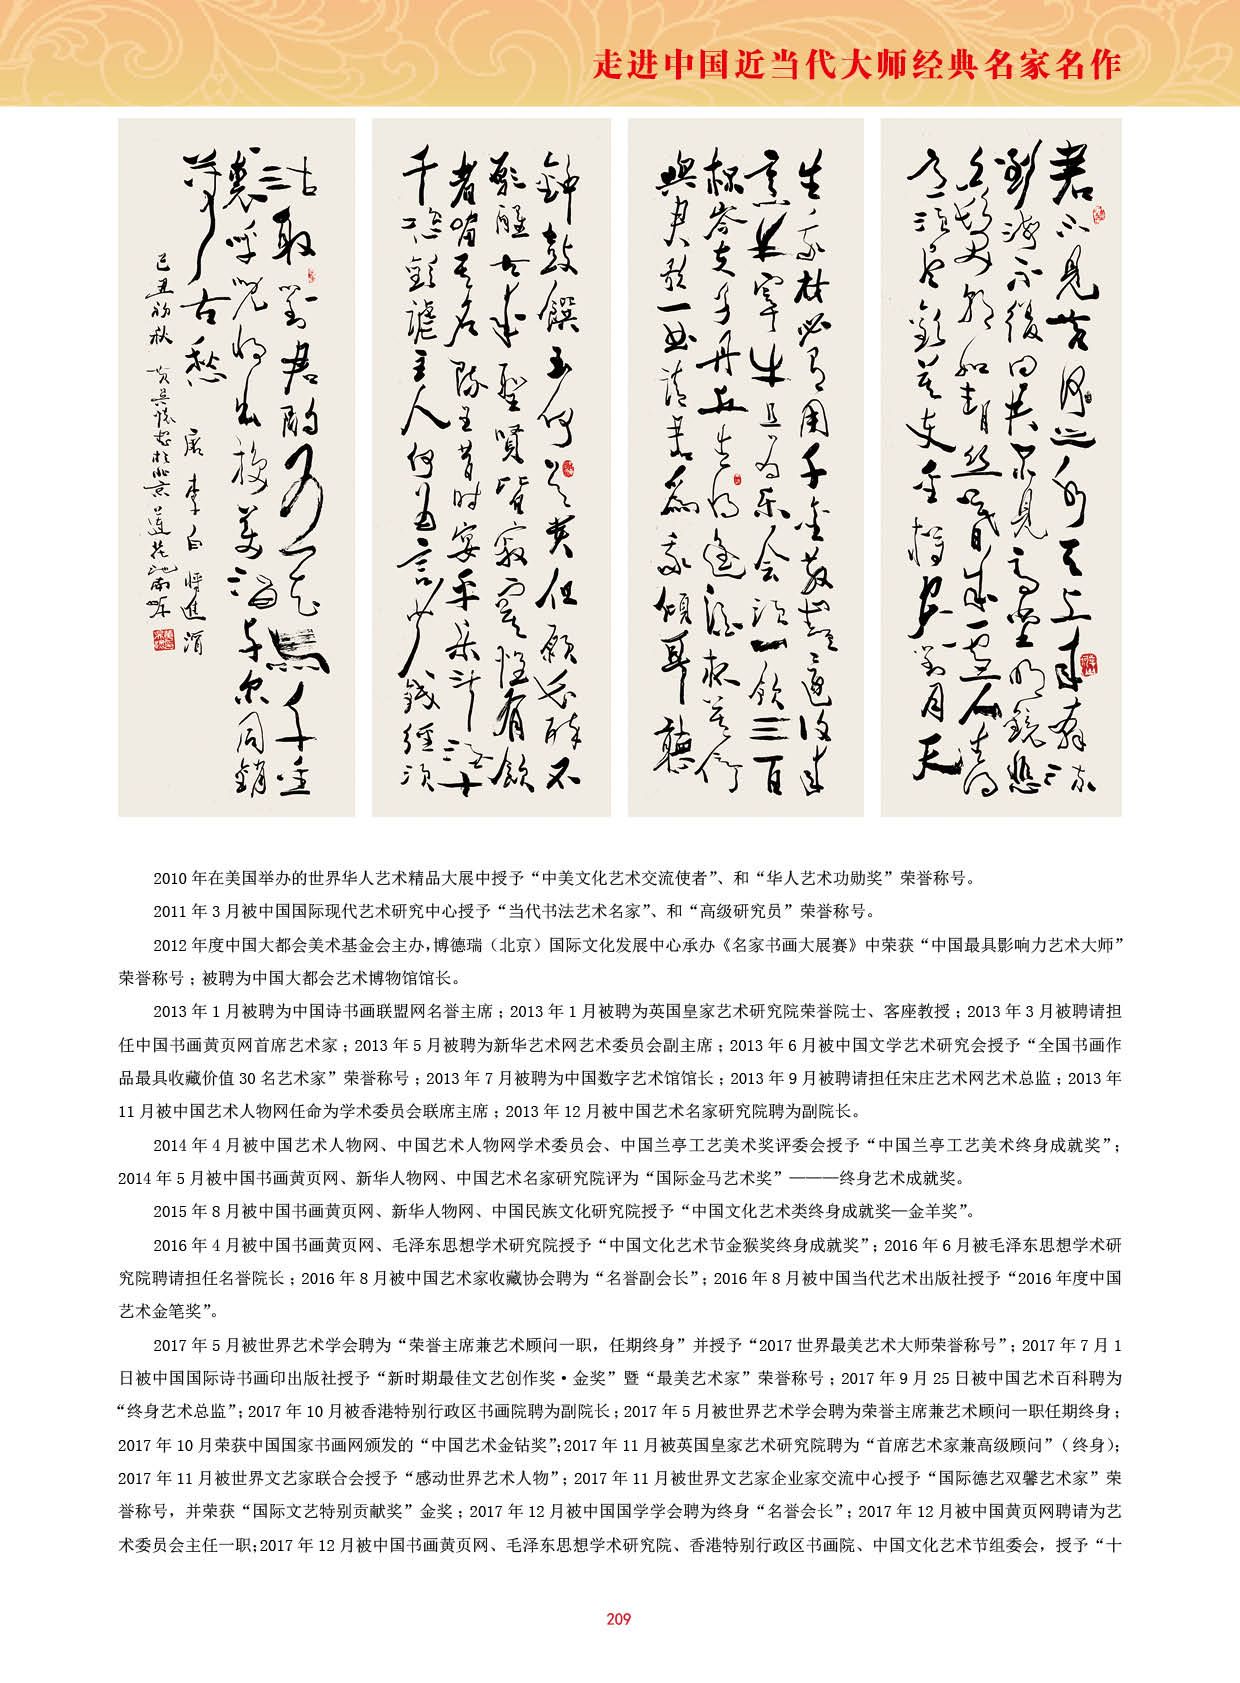 走进中国近当代大师经典名家名作
君不見黄河之水天上来奔流
到海不復回君不見高堂明鏡悲
白髮朝如青絲暮成雪人生得
意須尽歡莫使金樽空對月天
生我材必有用千金散盡還復来
烹羊宰牛且为樂會須一飲三百
杯岑夫子丹丘生将進酒杯莫停
與君歌一曲請君為我傾耳聽
鐘鼓饌玉何足貴但願長醉不
願醒古来聖賢皆寂寞惟有飲
者留其名陳王昔時宴平樂斗酒十
千恣歡謔主人何為言少錢徑須
沽取對君酌五花馬千金
裘呼兒将出換美酒與尔同銷
萬古愁 唐李白將進酒
己丑初秋 於北京蓮花池南岸
2010 年在美国举办的世界华人艺术精品大展中授予“中美文化艺术交流使者”、和“华人艺术功勋奖”荣誉称号。
2011 年 3 月被中国国际现代艺术研究中心授予“当代书法艺术名家”、和“高级研究员”荣誉称号。
2012 年度中国大都会美术基金会主办，博德瑞（北京）国际文化发展中心承办《名家书画大展赛》中荣获“中国最具影响力艺术大师”
荣誉称号；被聘为中国大都会艺术博物馆馆长。
2013 年 1 月被聘为中国诗书画联盟网名誉主席；2013 年 1 月被聘为英国皇家艺术研究院荣誉院士、客座教授；2013 年 3 月被聘请担
任中国书画黄页网首席艺术家；2013 年 5 月被聘为新华艺术网艺术委员会副主席；2013 年 6 月被中国文学艺术研究会授予“全国书画作
品最具收藏价值 30 名艺术家”荣誉称号；2013 年 7 月被聘为中国数字艺术馆馆长；2013 年 9 月被聘请担任宋庄艺术网艺术总监；2013 年
11 月被中国艺术人物网任命为学术委员会联席主席；2013 年 12 月被中国艺术名家研究院聘为副院长。
2014 年 4 月被中国艺术人物网、中国艺术人物网学术委员会、中国兰亭工艺美术奖评委会授予“中国兰亭工艺美术终身成就奖”；
2014 年 5 月被中国书画黄页网、新华人物网、中国艺术名家研究院评为“国际金马艺术奖”———终身艺术成就奖。
2015 年 8 月被中国书画黄页网、新华人物网、中国民族文化研究院授予“中国文化艺术类终身成就奖—金羊奖”。
2016 年 4 月被中国书画黄页网、毛泽东思想学术研究院授予“中国文化艺术节金猴奖终身成就奖”；2016 年 6 月被毛泽东思想学术研
究院聘请担任名誉院长；2016 年 8 月被中国艺术家收藏协会聘为“名誉副会长”；2016 年 8 月被中国当代艺术出版社授予“2016 年度中国
艺术金笔奖”。
2017 年 5 月被世界艺术学会聘为“荣誉主席兼艺术顾问一职，任期终身”并授予“2017 世界最美艺术大师荣誉称号”；2017 年 7 月 1
日被中国国际诗书画印出版社授予“新时期最佳文艺创作奖·金奖”暨“最美艺术家”荣誉称号；2017 年 9 月 25 日被中国艺术百科聘为
“终身艺术总监”；2017 年 10 月被香港特别行政区书画院聘为副院长；2017 年 5 月被世界艺术学会聘为荣誉主席兼艺术顾问一职任期终身；
2017 年 10 月荣获中国国家书画网颁发的“中国艺术金钻奖”；2017 年 11 月被英国皇家艺术研究院聘为“首席艺术家兼高级顾问”（终身）；
2017 年 11 月被世界文艺家联合会授予“感动世界艺术人物”；2017 年 11 月被世界文艺家企业家交流中心授予“国际德艺双馨艺术家”荣
誉称号，并荣获“国际文艺特别贡献奖”金奖；2017 年 12 月被中国国学学会聘为终身“名誉会长”；2017 年 12 月被中国黄页网聘请为艺
术委员会主任一职；2017 年 12 月被中国书画黄页网、毛泽东思想学术研究院、香港特别行政区书画院、中国文化艺术节组委会，授予“十
209